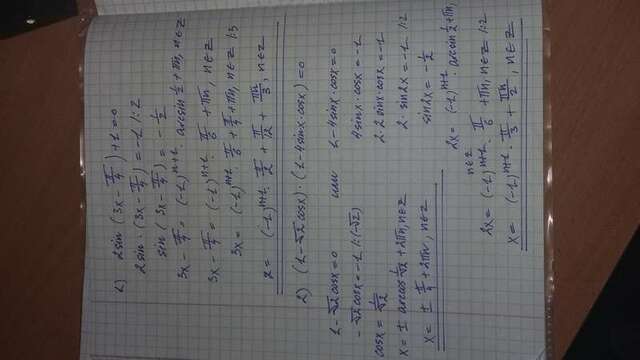 1) 2sin (3x - π/4) + 1 = 0
2sin · (3x - π/4) = -1 |:2
sin (3x - π/4) = - 1/2
3x - π/4 = (-1)^(n+1) · arcsin 1/2 + πn, n∈Z
3x - π/4 = (-1)^(n+1) · π/6 + πn, n∈Z
3x = (-1)^(n+1) · π/6 + π/4 + πn, n∈Z |:3
x = (-1)^(n+1) · π/2 + π/12 + πn/3, n∈Z
2) (1 - √2cosx) · (1 - 4sinx · cosx) = 0
1 - √2cosx = 0 или 1 - 4sinx · cosx = 0
- √2cosx = -1 |:(-√2) 4sinx · cosx = -1
cosx = 1/√2 2·2sinx·cosx = -1
x = ± arccos 1/√2 + 2πn, n∈Z 2 · sin2x = -1 |:2
x = ± π/4 + 2πn, n∈Z sin2x = - 1/2
2x = (-1)^(n+1) · arcsin 1/2 + πn,
n∈Z
2x = (-1)^(n+1) · π/6 + πn, n∈Z |:2
x = (-1)^(n+1) · π/3 + πn/2, n∈Z